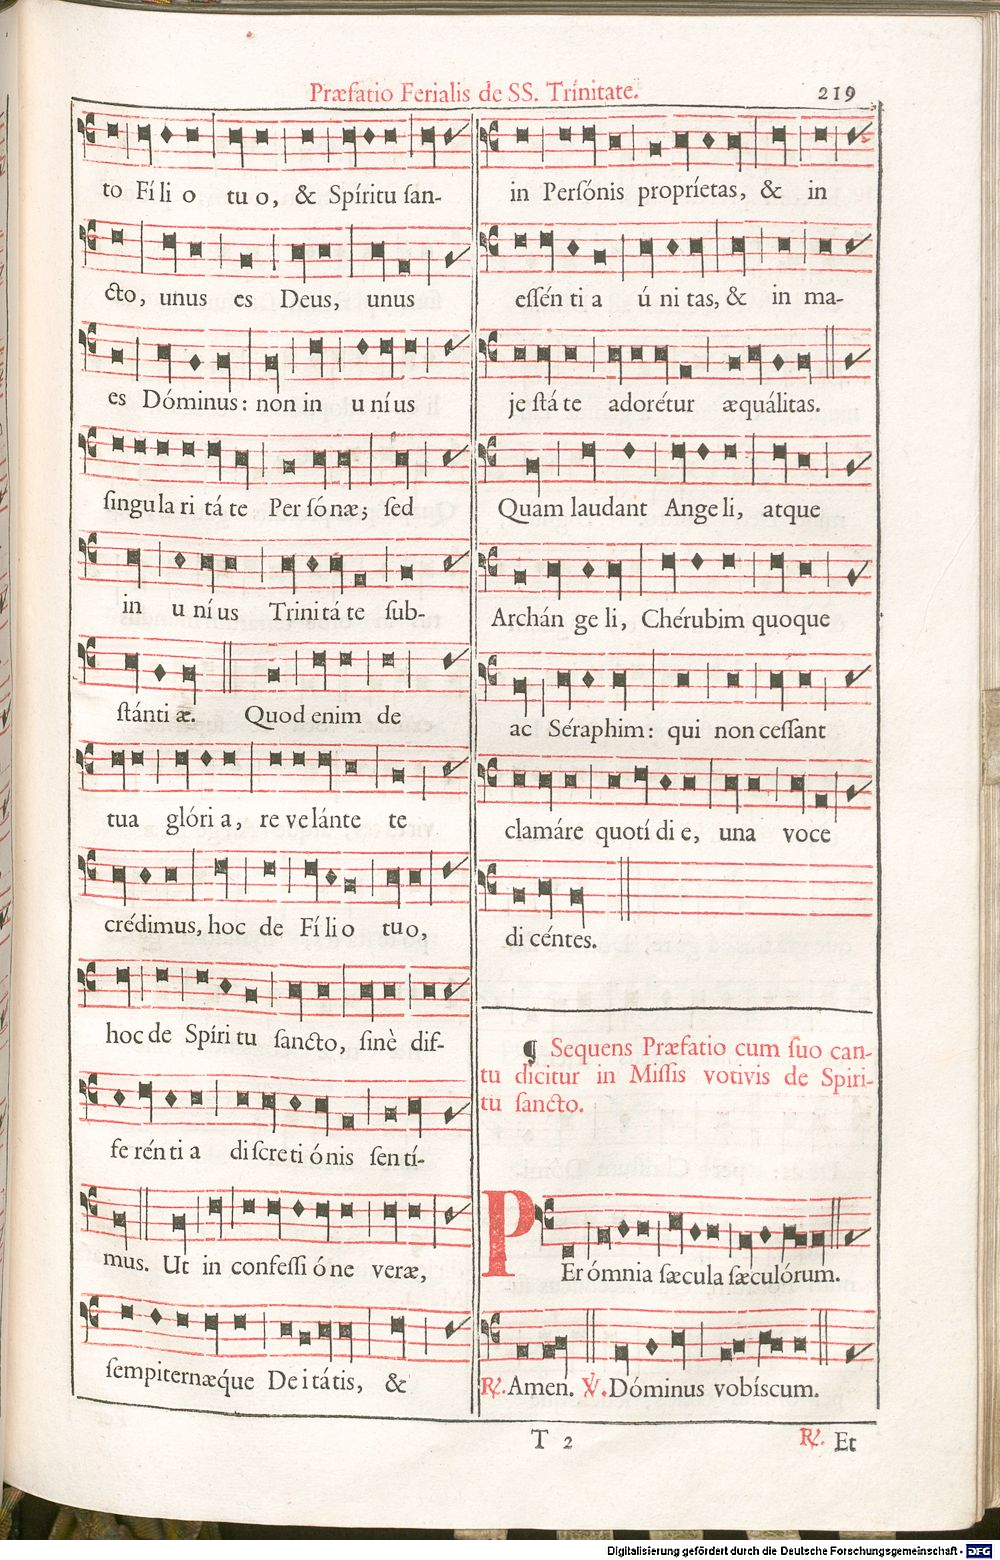 Præfatio Ferialis de SS. Trínitate. 219
to Fí li o tu o, & Spíritu ſan-
cto, unus es Deus, unus
es Dóminus: non in u ní us
ſingula ri tá te Per ſó næ; ſed
in u ní us Trini tá te ſub-
ſtánti æ. Quod enim de
tua glóri a, re ve lánte te
crédimus, hoc de Fí li o tu o,
hoc de Spíri tu ſancto, ſinè dif-
fe rén ti a di ſcre ti ónis ſen tí-
mus. Ut in confeſſi ó ne veræ,
ſempiternæque De i tátis, &
in Perſónis propríetas, & in
eſſén ti a ú ni tas, & in ma-
je ſtá te adorétur æquálitas.
Quam laudant Ange li, atque
Archán ge li, Chérubim quoque
ac Séraphim: qui non ceſſant
clamáre quotí di e, una voce
di céntes.
¶ Sequens Præfatio cum ſuo can-
tu dicitur in Miſſis votivis de Spiri-
tu ſancto.
PEr ómnia ſæcula ſæculórum.
℟. Amen. ℣. Dóminus vobíscum.
T 2 ℟. Et
Digitalisierung gefördert durch die Deutsche Forschungsgemeinschaft - DFG